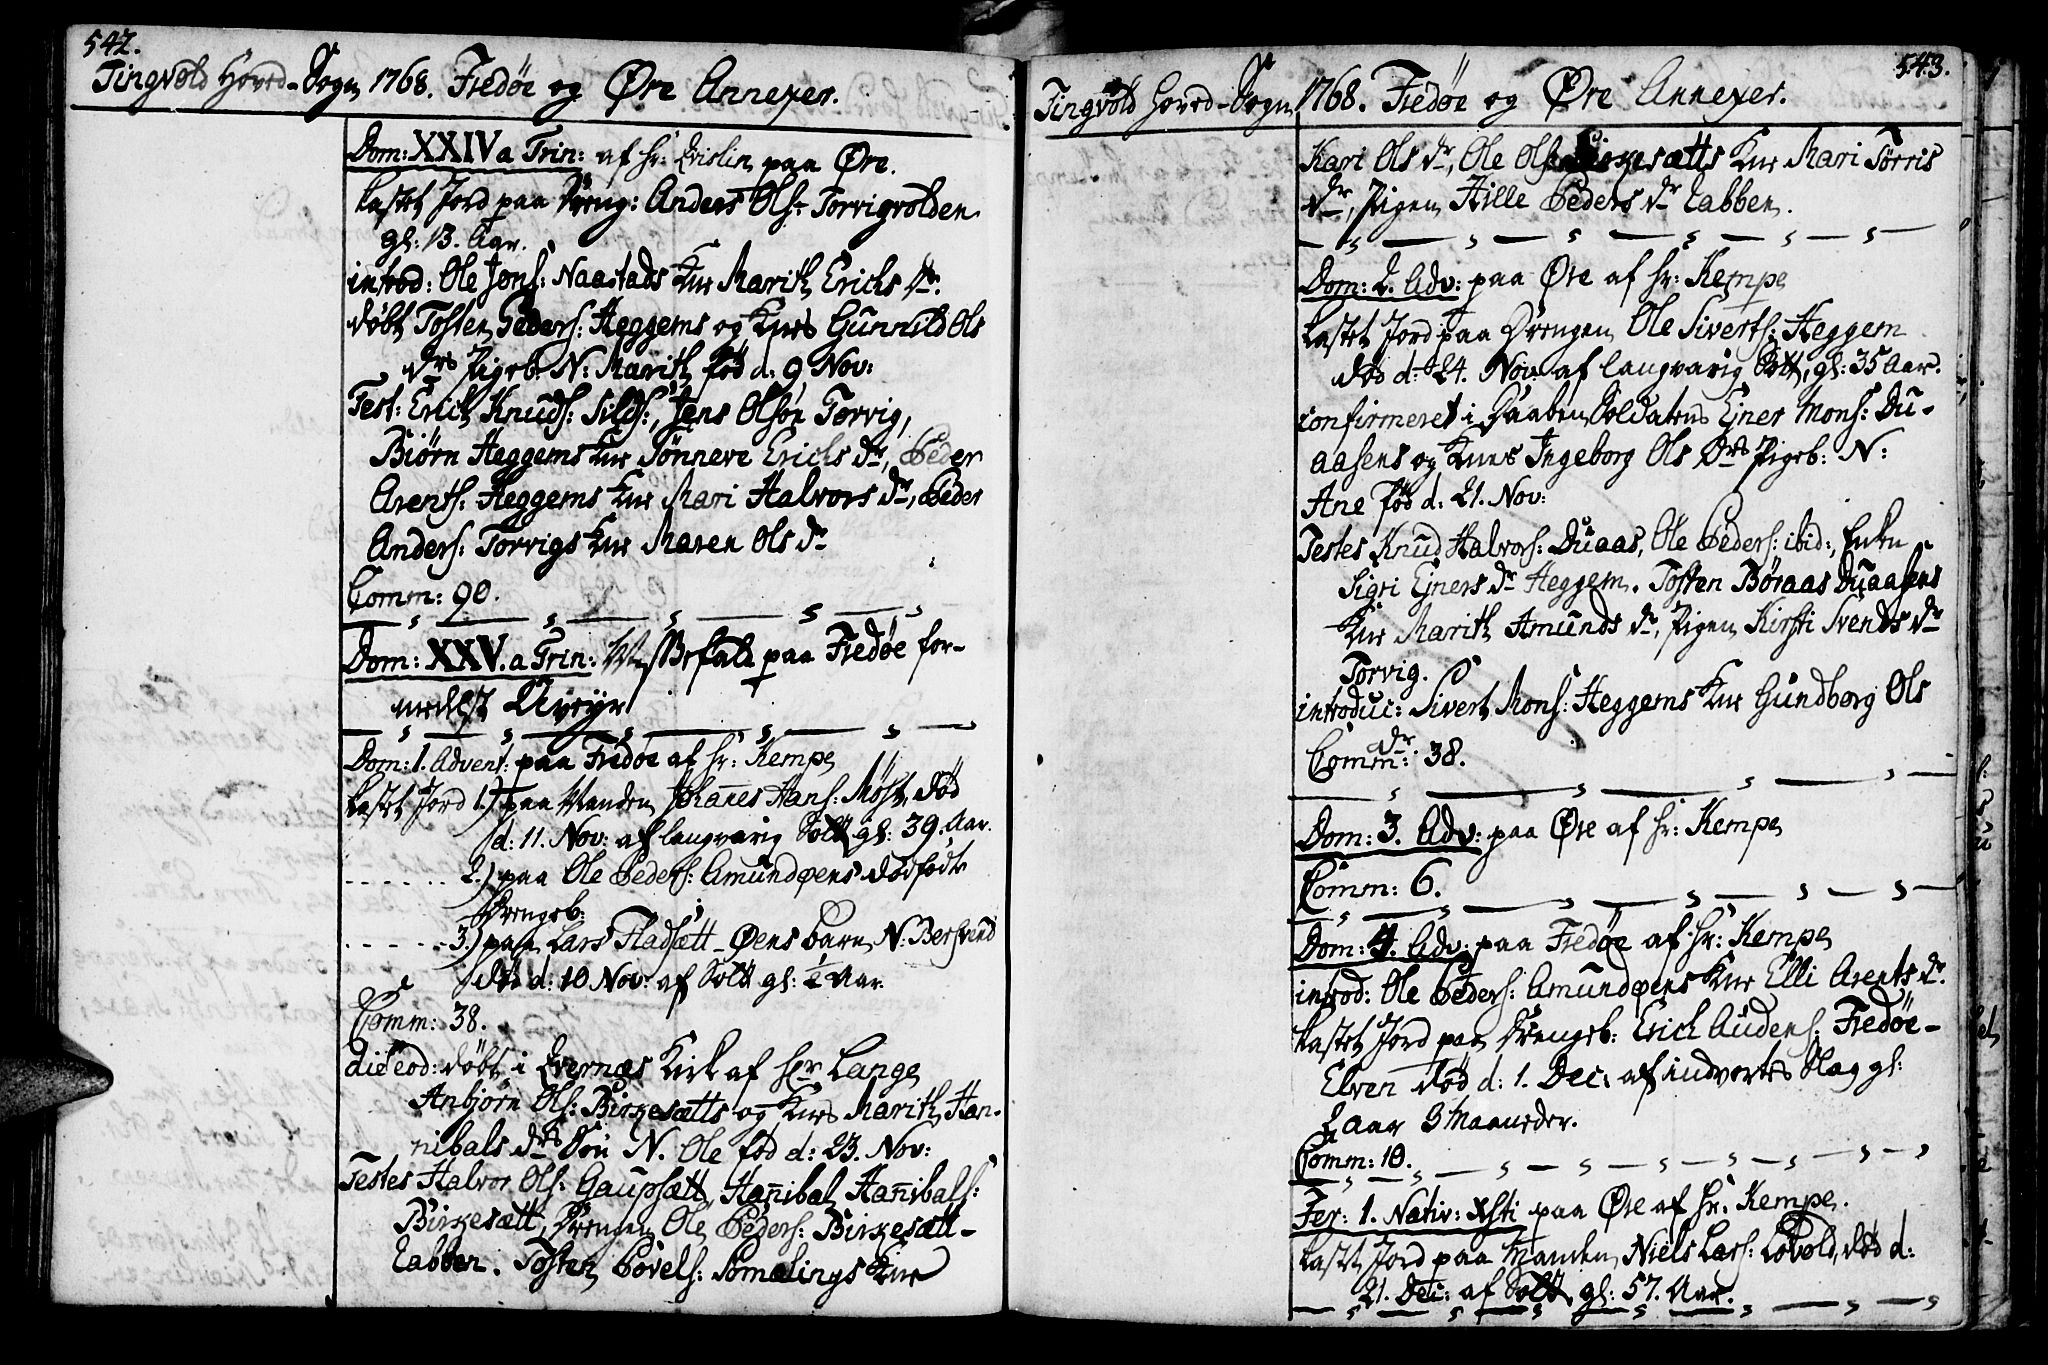 542.
Tingvold Hoved-Sogn 1768. Fredøe og Øre Annexer.
Dom: XXIV a Trin: af hr: Qvislin paa Øre.
kastet Jord paa Dreng: Anders Ols: Torvigvolden
gl: 13. Aar.
introd: Ole Jons: Naastads Kne Marith Erichs Dr.
døbt Tosten Peders: Heggems og Knes Gunnild Ols
Drs Pigeb. N: Marith fød d: 9 Nov:
Test: Erich Knuds: Silds:, Jens Olsøn Torvig,
Biørn Heggems Kne Sønneve Erichs Dr, Peder
Arents: Heggems Kne Mari Halvors Dr, Peder
Anders: Torvigs Kne Maren Ols Dr
Comm: 90.
Dom: XXV. a Trin: Messefald paa Fredøe for-
medelst Uveyr
Dom: 1. Advent: paa Fredøe af hr: Kempe
kastet Jord 1.) paa Manden Johanes Hans: Møst, død
d: 11. Nov: af langvarig Sott gl: 39. Aar.
2.) paa Ole Peders: Amundøens dødfødte
Drengeb:
3.) paa Lars Fladsætt-Øens barn N: Bersvend
død d: 10 Nov: af Sott gl: ½ Aar
Comm: 38.
die eod: døbt i Qvernæs Kirke af Hr Lange
Anbjørn Ols: Birkesætts og Knes Marith Han-
nibals Drs Søn N. Ole fød d: 23. Nov:
Testes Halvor Ols: Gaupsætt, Hanibal Hanibals:
Birkesætt, Drengen Ole Peders: Birkesætt-
labben. Tosten Povels: Somalings Kne
543.
Tingvold Hoved-Sogn 1768. Fredøe og Øre Annexer.
Kari Ols Dr, Ole Ols: Birkesætts Kne Mari Tørris
Dr, Pigen Hille Peders Dr labben.
Dom: 2. Adv: paa Øre af hr: Kempe
kastet Jord paa Drengen Ole Siverts: Heggem
død d: 24. Nov: af langvarig Sott, gl: 35 Aar.
confirmeret i Daaben Soldaten Ejner Mons: Du-
aasens og Knes Ingeborg Ols Drs Pigeb: N:
Ane fød d: 21. Nov:
Testes Knud Halvors: Duaas, Ole Peders: ibid:, Enken
Sigri Ejners Dr Heggem. Tosten Børaas Duaasens
Kne Marith Amunds Dr, Pigen Kirsti Svends Dr
Torvig.
introduc: Sivert Mons: Heggems Kne Gundborg Ols
Dr.
Comm: 38.
Dom: 3. Adv: paa Øre af hr: Kempe
Comm: 6.
Dom: 4. Adv: paa Fredøe af hr: Kempe
introd: Ole Peders: Amundøens Kne Elli Arents Dr.
kastet Jord paa Drengeb: Erich Audens: Fredøe-
Elven død d: 1. Dec: af indvortes Slag gl:
2 aar 3 Maaneder.
Comm: 10.
Fer: 1. Nativ: Xsti paa Øre af hr: Kempe.
kastet Jord paa Manden Niels Lars: Løvold, død d:
21. Dec: af Sott gl: 57. Aar.